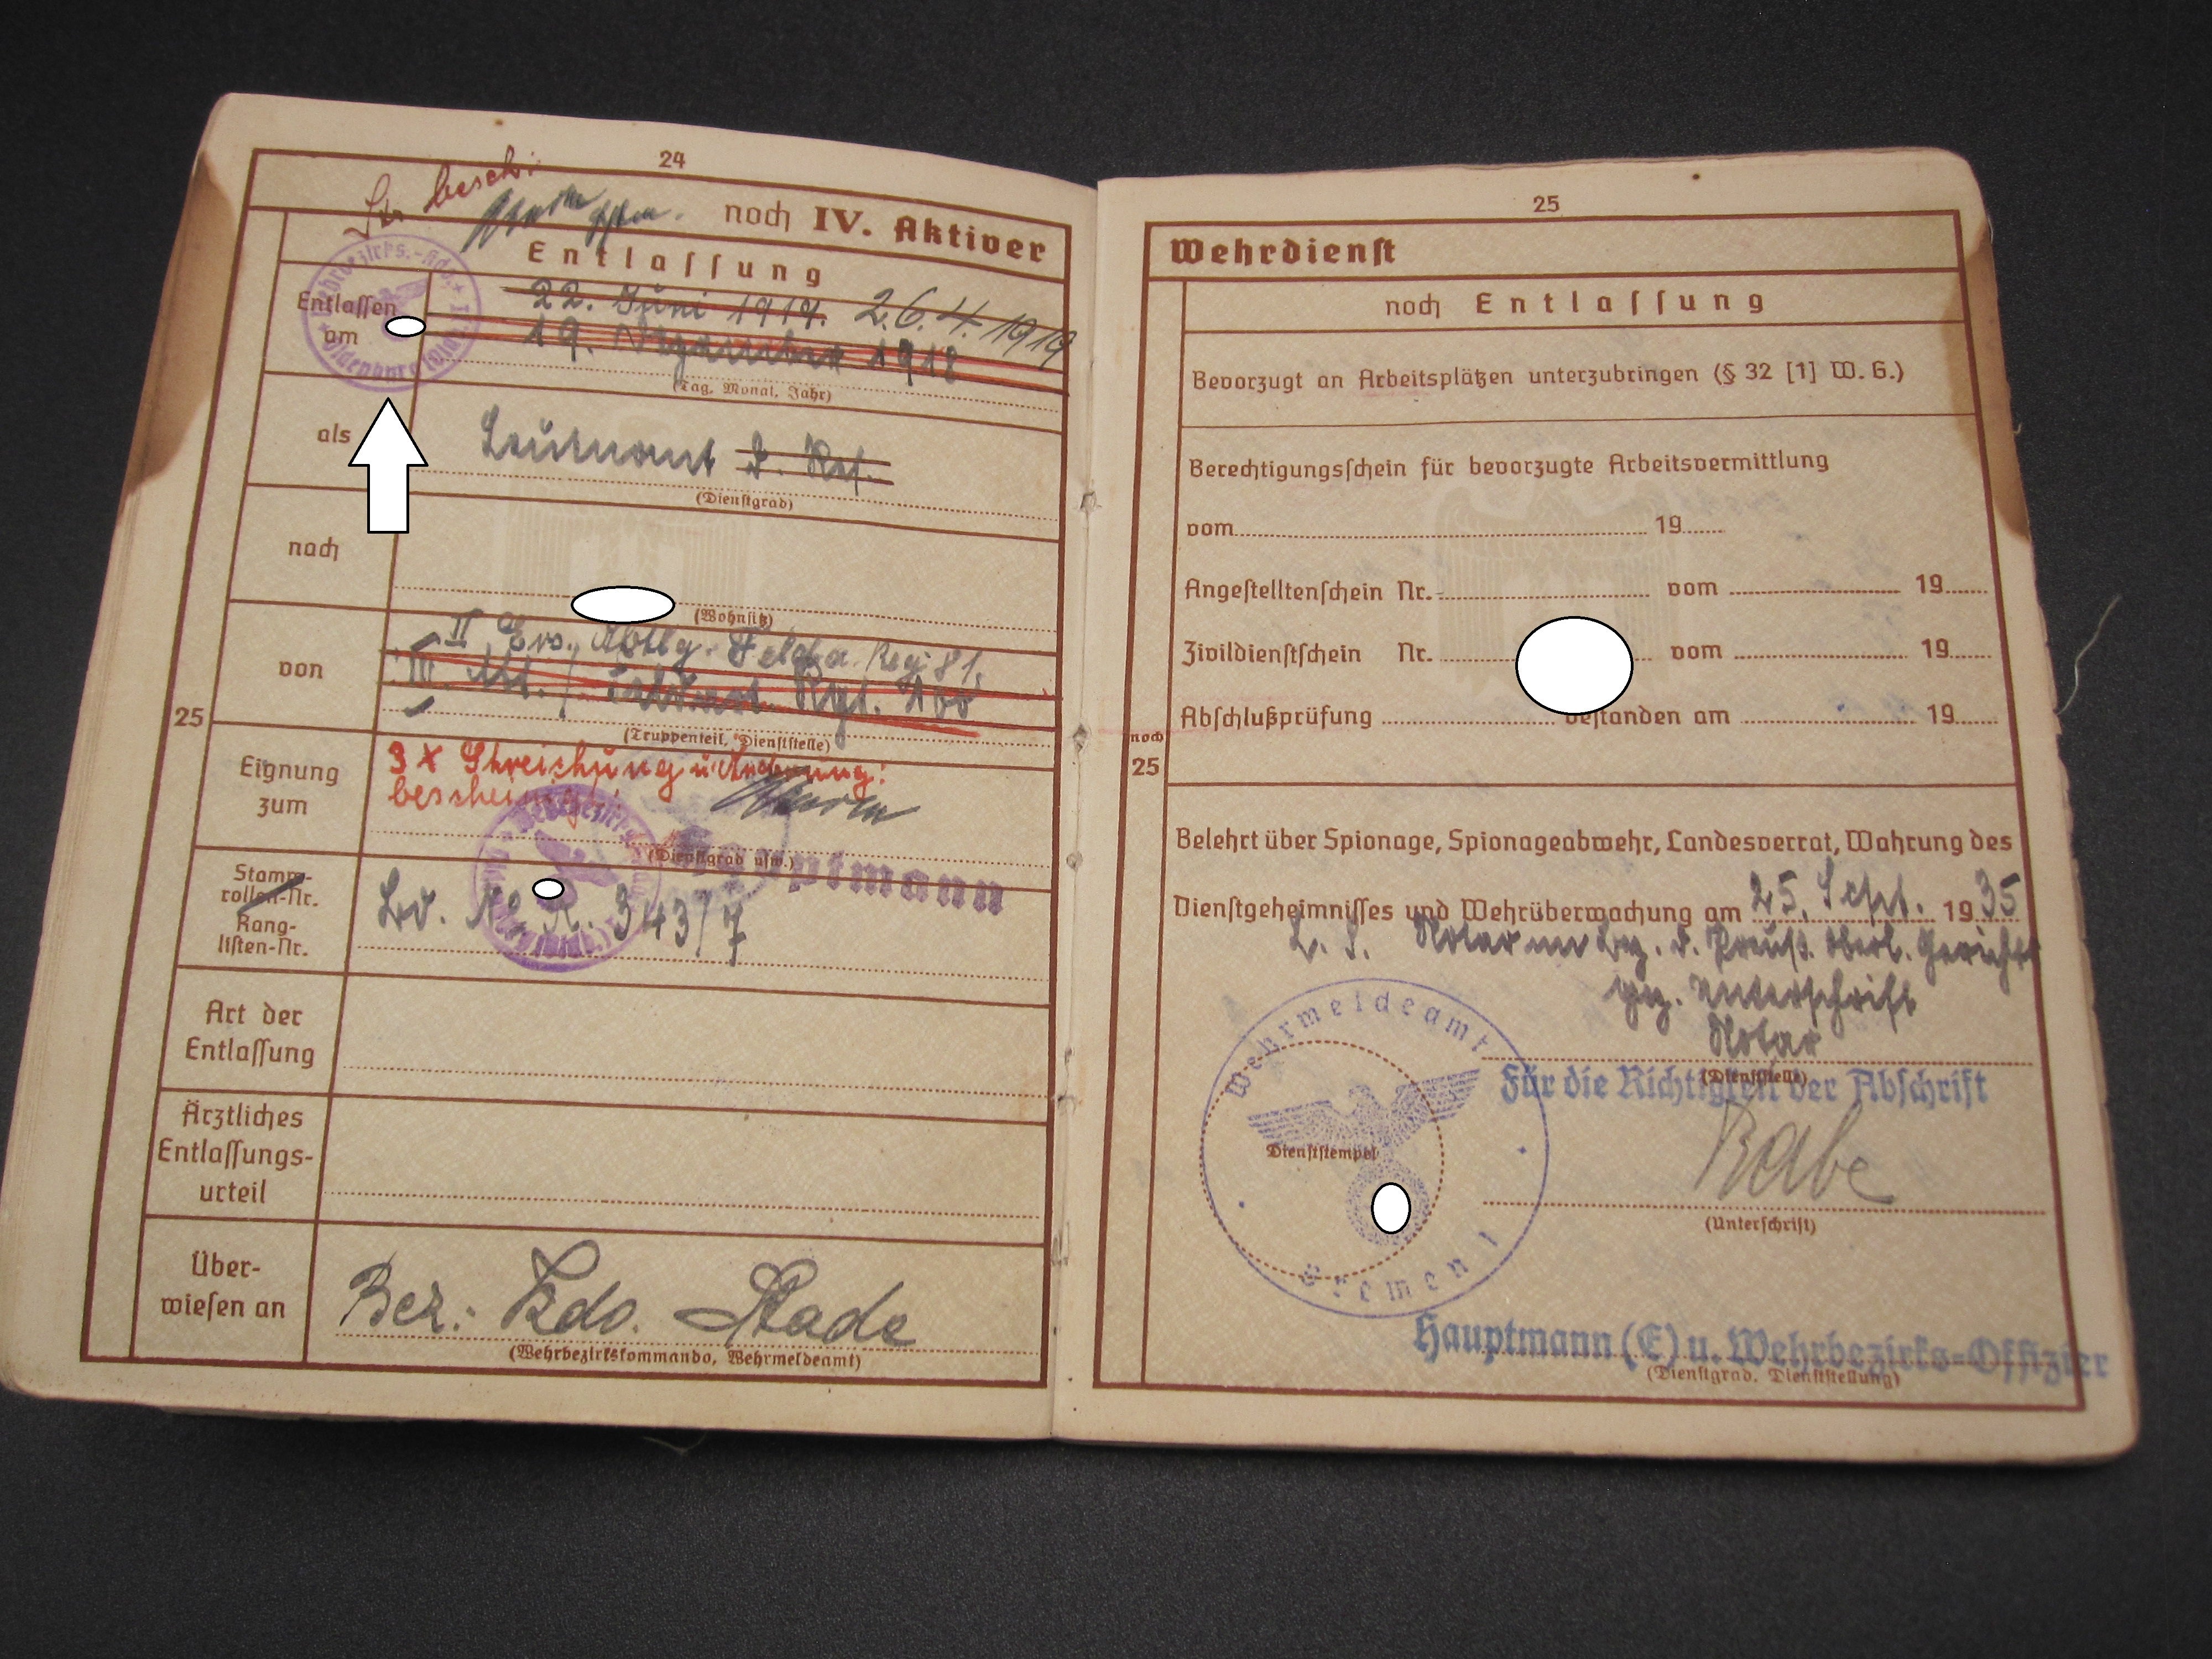 24
Für besch:
noch IV. Aktiver
Entlassung
Entlassen am
22. Juni 1919. 26.4.1919
19. Dezember 1918
(Tag, Monat, Jahr)
als
Leutnant d. Res.
(Dienstgrad)
nach
(Wohnsitz)
von
II Ers. Abtlg. Felda. Reg. 81.
III. Abt. / Feldart. Rgt.
(Truppenteil, Dienststelle)
25
Eignung zum
3 x Streichung u. Änderung:
bescheinigt:
(Dienstgrad usw.)
Hauptmann
Stamm-
rollen-Nr.
Rang-
listen-Nr.
Lv. No R. 343/7
Art der
Entlassung
Ärztliches
Entlassungs-
urteil
Über-
wiesen an
Bez: Kdo. Stade
(Wehrbezirkskommando, Wehrmeldeamt)
25
Wehrdienst
noch Entlassung
Bevorzugt an Arbeitsplätzen unterzubringen (§ 32 [1] W. G.)
Berechtigungsschein für bevorzugte Arbeitsvermittlung
vom 19
Angestelltenschein Nr. vom 19
Zivildienstschein Nr. vom 19
Abschlußprüfung bestanden am 19
noch
25
Belehrt über Spionage, Spionageabwehr, Landesverrat, Wahrung des
Dienstgeheimnisses und Wehrüberwachung am 25. Sept. 1935
L. S. Notar im Bez. d. Preuß. Oberl. Gerichts
gez. Unterschrift
Notar
(Dienststelle)
Für die Richtigkeit der Abschrift
Wehrmeldeamt
Dienststempel
Bremen I
Rabe
(Unterschrift)
Hauptmann (E) u. Wehrbezirks-Offizier
(Dienstgrad, Dienststellung)